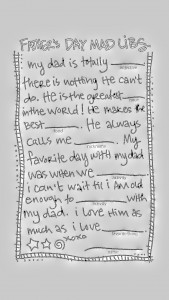 FATHER'S DAY MAD LIBS
my dad is totally ________
there is nothing He can't
do. He is the greatest ____
in the world! He makes the
best ______. He always
food
calls me ________. My
favorite day with my dad
was when we ________
I can't wait til i am old
enough to ________ with
my dad. i love Him as
much as i love ________.
xoxo